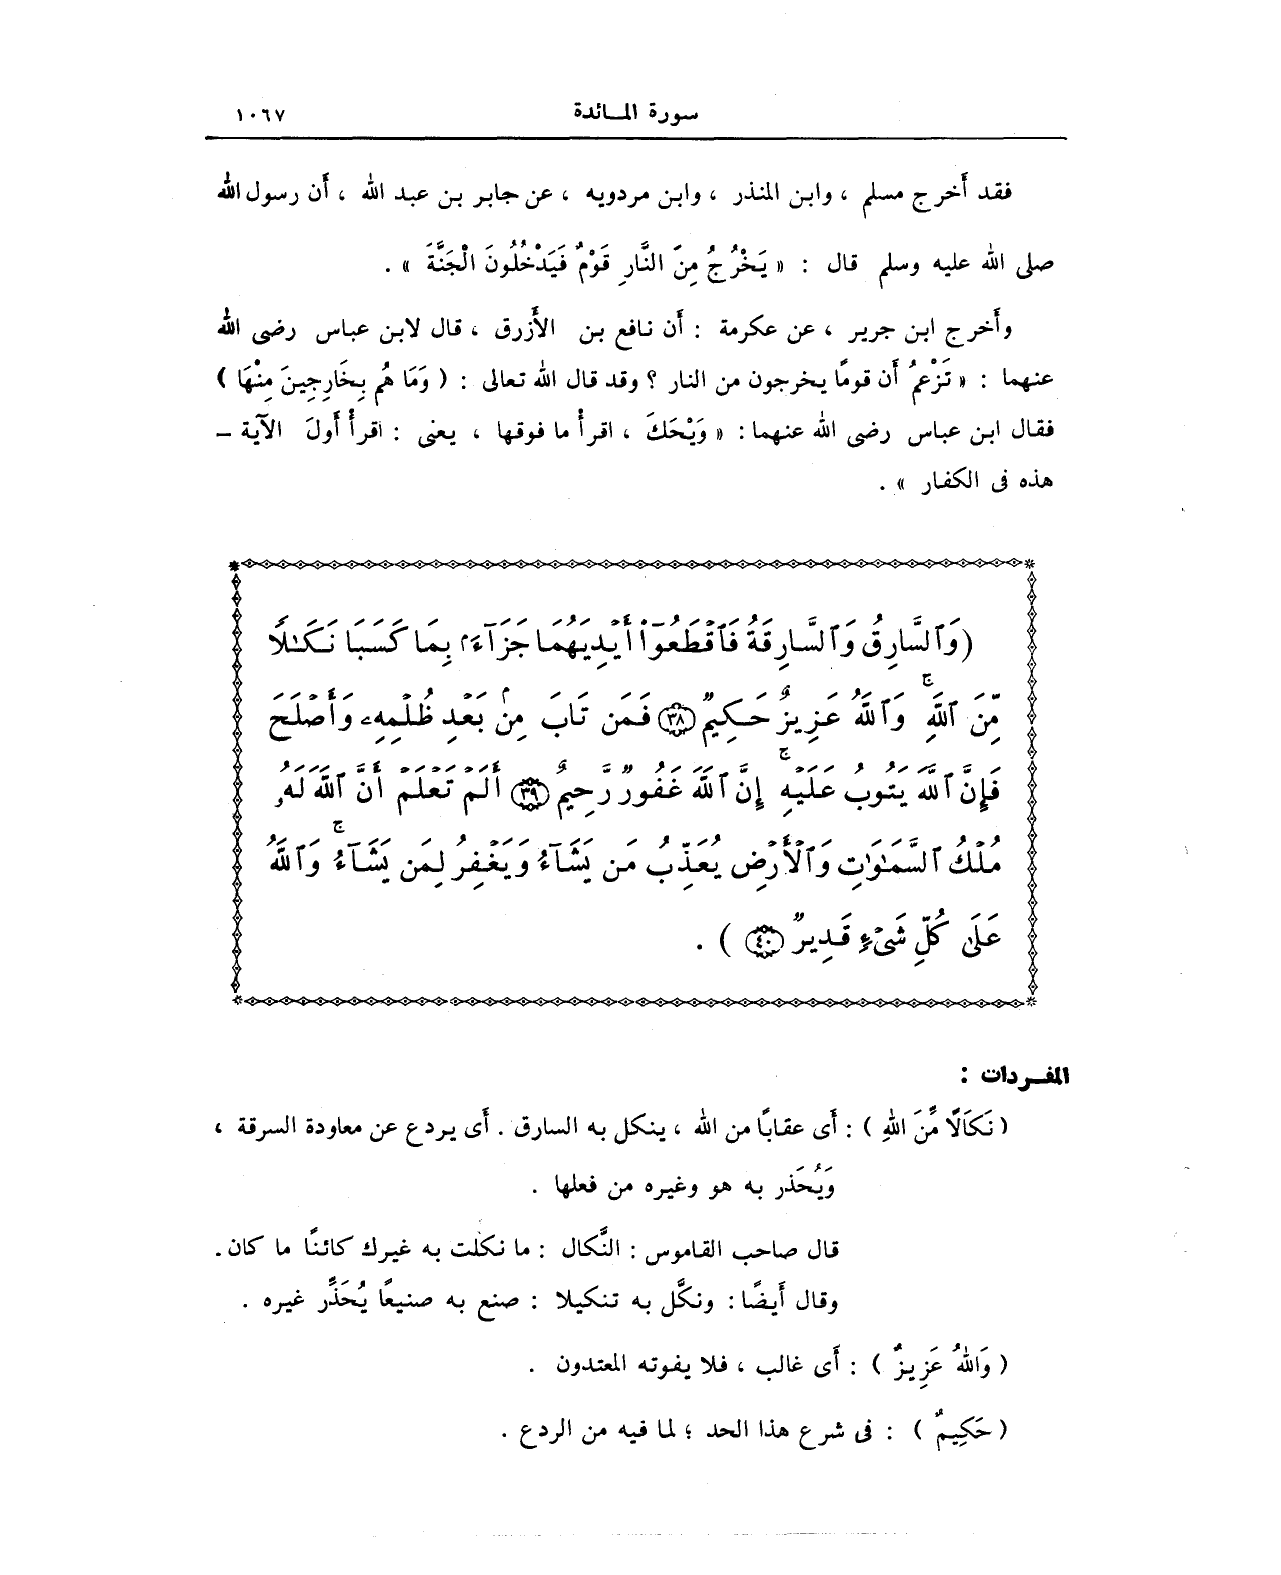 سورة المائدة ١٠٦٧
فقد أخرج مسلم ، وابن المنذر ، وابن مردويه ، عن جابر بن عبد الله ، أن رسول الله
صلى الله عليه وسلم قال : « يَخْرُجُ مِنَ النَّارِ قَوْمٌ فَيَدْخُلُونَ الْجَنَّةَ » .
وأخرج ابن جرير ، عن عكرمة : أن نافع بن الأزرق ، قال لابن عباس رضى الله
عنهما : « تَزْعمُ أن قومًا يخرجون من النار ؟ وقد قال الله تعالى : ( وَمَا هُم بِخَارِجِينَ مِنْهَا )
فقال ابن عباس رضى الله عنهما : « وَيْحَكَ ، اقرأْ ما فوقها ، يعنى : اقرأْ أَولَ الآية –
هذه فى الكفار » .
(وَٱلسَّارِقُ وَٱلسَّارِقَةُ فَٱقْطَعُوٓا۟ أَيْدِيَهُمَا جَزَآءَۢ بِمَا كَسَبَا نَكَـٰلًا
مِّنَ ٱللَّهِ ۗ وَٱللَّهُ عَزِيزٌ حَكِيمٌ ﴿٣٨﴾ فَمَن تَابَ مِنۢ بَعْدِ ظُلْمِهِۦ وَأَصْلَحَ
فَإِنَّ ٱللَّهَ يَتُوبُ عَلَيْهِ ۚ إِنَّ ٱللَّهَ غَفُورٌ رَّحِيمٌ ﴿٣٩﴾ أَلَمْ تَعْلَمْ أَنَّ ٱللَّهَ لَهُۥ
مُلْكُ ٱلسَّمَـٰوَٰتِ وَٱلْأَرْضِ يُعَذِّبُ مَن يَشَآءُ وَيَغْفِرُ لِمَن يَشَآءُ ۚ وَٱللَّهُ
عَلَىٰ كُلِّ شَىْءٍ قَدِيرٌ ﴿٤٠﴾ ) .
المفردات :
( نَكَالًا مِّنَ اللهِ ) : أى عقابًا من الله ، ينكل به السارق . أى يردع عن معاودة السرقة ،
وَيُحَذر به هو وغيره من فعلها .
قال صاحب القاموس : النَّكال : ما نكلت به غيرك كائنًا ما كان .
وقال أَيضًا : ونكَّل به تنكيلا : صنع به صنيعًا يُحَذِّر غيره .
( وَاللهُ عَزِيزٌ ) : أَى غالب ، فلا يفوته المعتدون .
( حَكِيمٌ ) : فى شرع هذا الحد ؛ لما فيه من الردع .